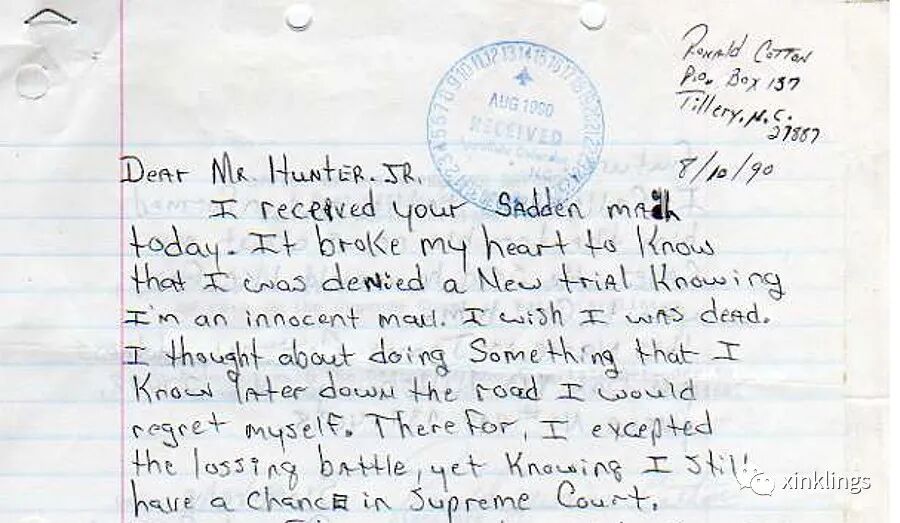 Ronald Cotton
P.O. Box 137
Tillery, N.C.
27887
8/10/90
AUG 1990
RECEIVED
Dear Mr. Hunter. JR.
I received your Sadden mail
today. It broke my heart to Know
that I was denied a New trial Knowing
I'm an innocent man. I wish I was dead.
I thought about doing Something that I
Know later down the road I would
regret myself. There for, I excepted
the lossing battle, yet Knowing I still
have a chance in Supreme Court.
xinklings